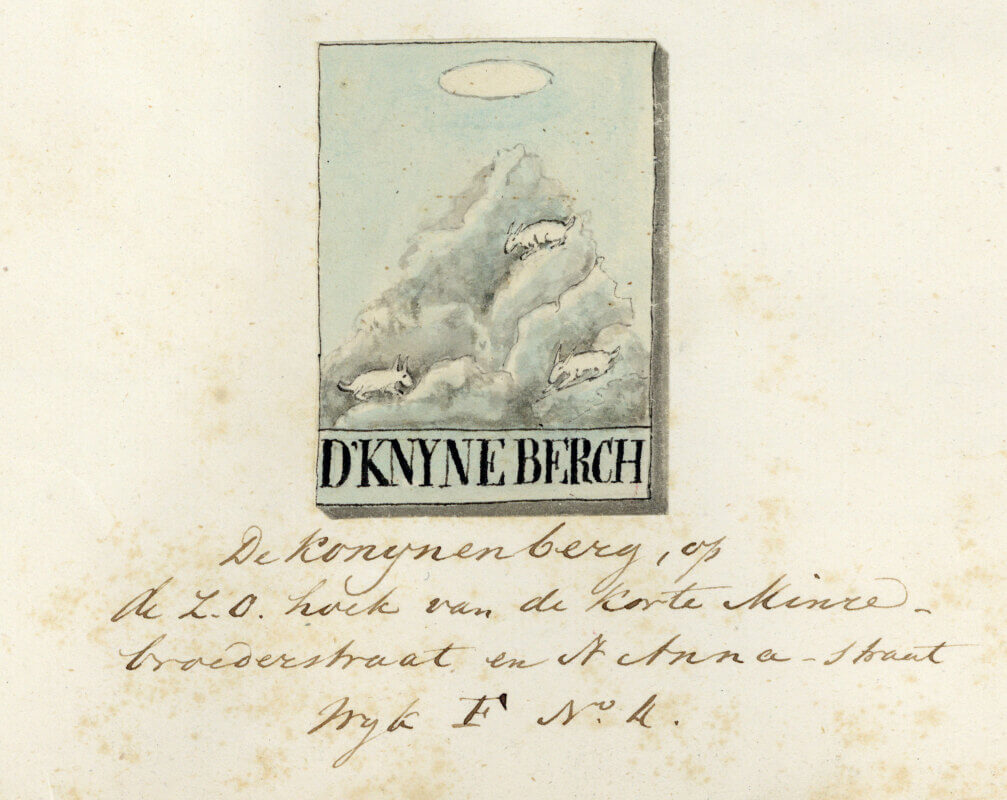 D'KNYNE BERCH
De Konynenberg, op
de Z.O. hoek van de Korte Minre-
broederstraat en St Anna-straat
Wyk F No. 4.